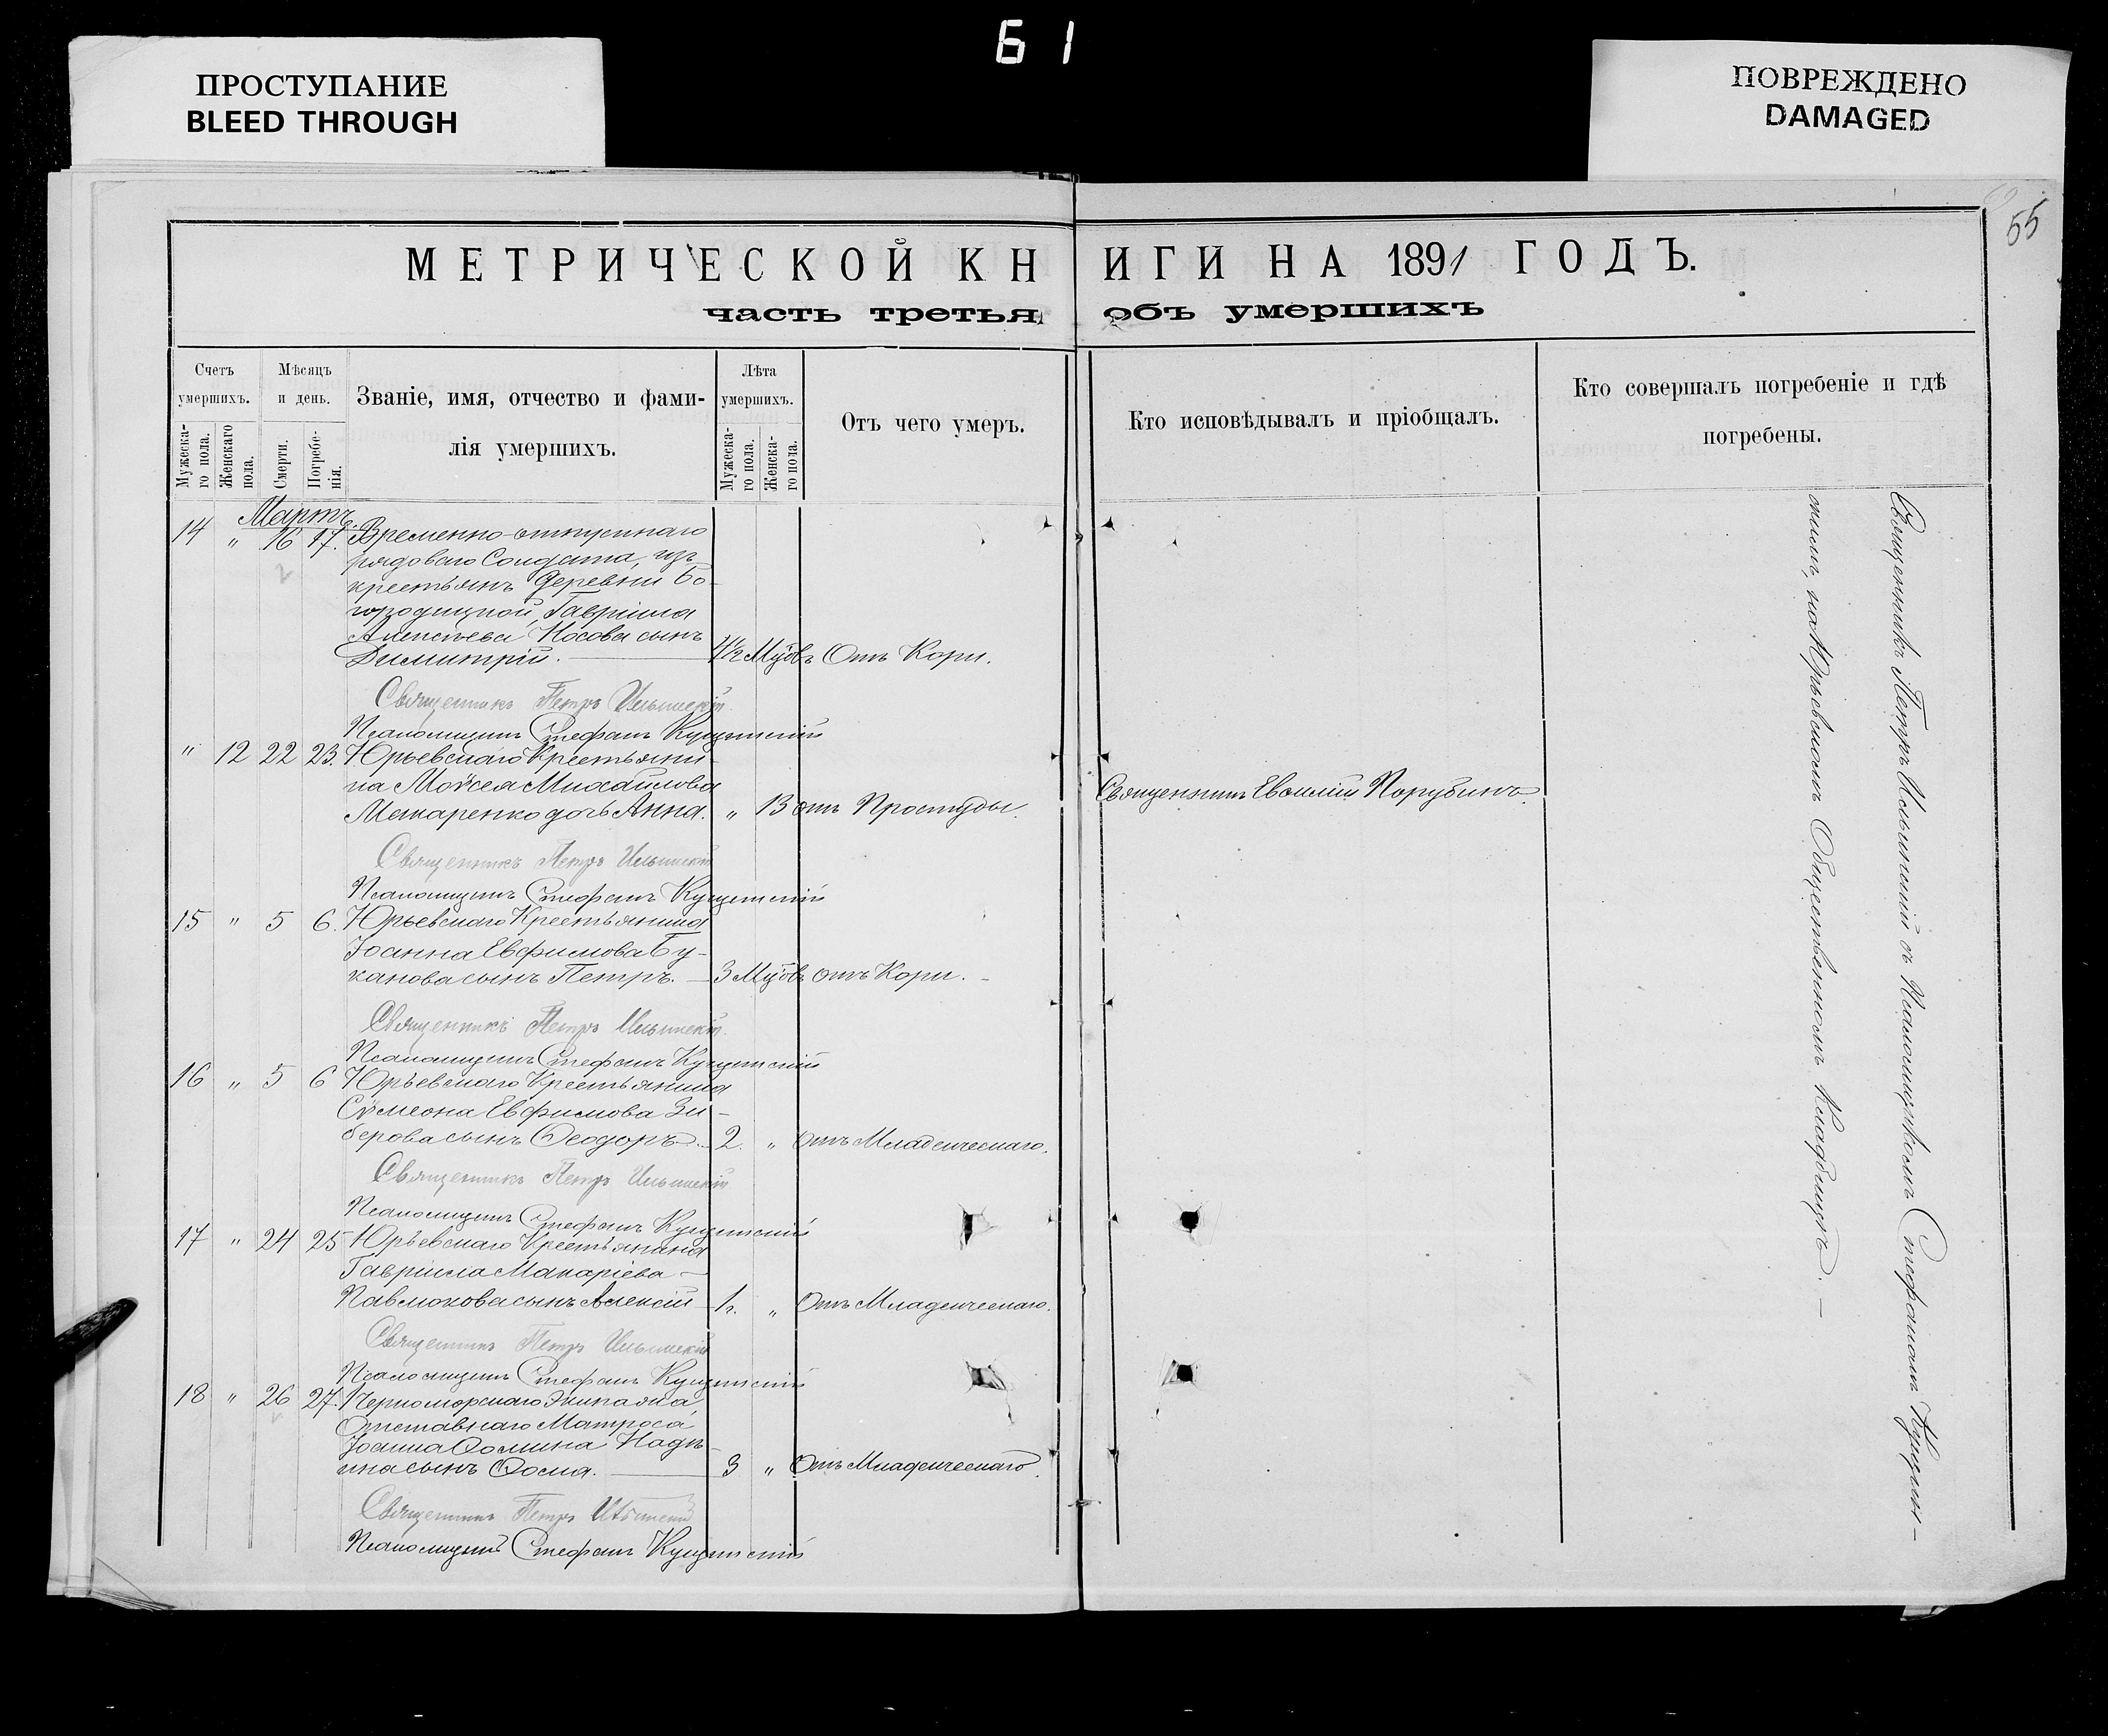 61
ПРОСТУПАНИЕ
BLEED THROUGH
ПОВРЕЖДЕНО
DAMAGED
55
МЕТРИЧЕСКОЙ КНИГИ НА 1891 ГОДЪ.
часть третья объ умершихъ
Счетъ умершихъ.
Мужеска-го пола.
Женскаго пола.
Мѣсяцъ и день.
Смерти.
Погребе-нія.
Званіе, имя, отчество и фами-
лія умершихъ.
Лѣта умершихъ.
Мужеска-го пола.
Женска-го пола.
Отъ чего умеръ.
Кто исповѣдывалъ и пріобщалъ.
Кто совершалъ погребеніе и гдѣ
погребены.
Мартъ.
14 " 16 17. Временно-отпускнаго
рядоваго Солдата, изъ
крестьянъ деревни Бо-
городицкой, Гавріила
Алексѣева Носова сынъ
Димитрій. 4½ Мцовъ Отъ Кори.
Священникъ Петръ Ильинскій.
Псаломщикъ Стефанъ Кущинскій
" 12 22 23. Юрьевскаго Крестьяни-
на Моѵсея Михайлова
дочь Анна. " 13 отъ Простуды. Священникъ Евсилій
Священникъ Петръ Ильинскій
Псаломщикъ Стефанъ Кущинскій
15 " 5 6. Юрьевскаго Крестьянина
Іоанна Евфимова Бу-
ханова сынъ Петръ. 3 Мцовъ отъ Кори.
Священникъ Петръ Ильинскій.
Псаломщикъ Стефанъ Кущинскій
16 " 5 6 Юрьевскаго Крестьянина
Сѵмеона Евфимова Зи-
берова сынъ Ѳеодоръ. 2. " Отъ Младенческаго.
Священникъ Петръ Ильинскій
Псаломщикъ Стефанъ Кущинскій
17 " 24 25 Юрьевскаго Крестьянина
Гавріила Макаріева
сынъ Алексій 1г. " Отъ Младенческаго.
Священникъ Петръ Ильинскій
Псаломщикъ Стефанъ Кущинскій
18 " 26 27. Черноморскаго Экипажа,
Отставнаго Матроса
Іоанна Ѳомина
сынъ Ѳома. 3 " Отъ Младенческаго.
Священникъ Петръ Ильинскій
Псаломщикъ Стефанъ Кущинскій
Священникъ Петръ Ильинскій съ Псаломщикомъ Стефаномъ Кущин-
скимъ, на Юрьевскомъ Общественномъ Кладбищѣ.